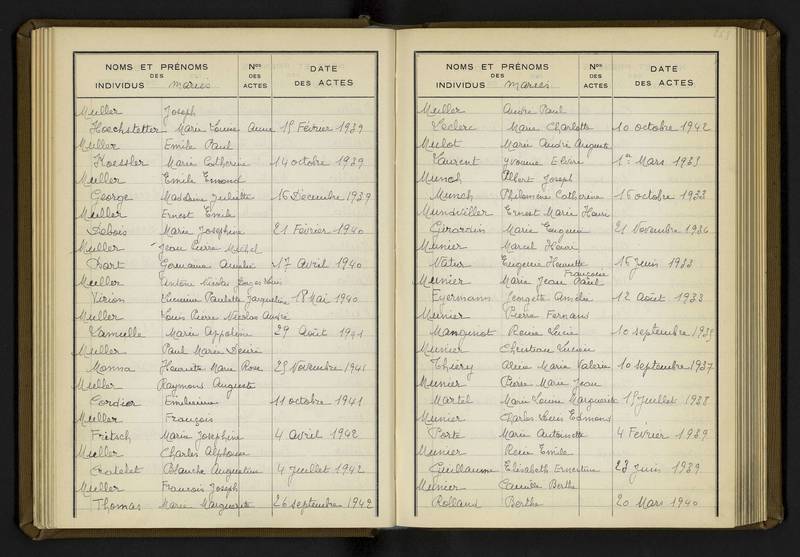 NOMS ET PRÉNOMS
DES
INDIVIDUS mariés
Nos
DES
ACTES
DATE
DES ACTES
Muller Joseph
Hoechstetter Marie Louise Anne 15 Février 1939
Muller Emile Paul
Koessler Marie Catherine 14 octobre 1939
Muller Emile Edmond
George Madeleine Juliette 16 Décembre 1939
Muller Ernest Emile
Debois Marie Josephine 21 Février 1940
Muller Jean Pierre Michel
Dart Germaine Amélie 17 Avril 1940
Muller Antoine Nicolas Georges Louis
Virion Lucienne Paulette Jacqueline 18 Mai 1940
Muller Louis Pierre Nicolas André
Vamielle Marie Appoline 29 Août 1941
Muller Paul Marie Désiré
Monna Henriette Marie Rose 25 Novembre 1941
Muller Raymond Auguste
Cordior 11 octobre 1941
Muller François
Fritsch Marie Josephine 4 Avril 1942
Muller Charles Alphonse
Chatelet Blanche Augustine 4 Juillet 1942
Muller Francois Joseph
Thomas Marie Marguerite 26 septembre 1942
NOMS ET PRÉNOMS
DES
INDIVIDUS mariés
Nos
DES
ACTES
DATE
DES ACTES
Muller André Paul
Leclerc Marie Charlotte 10 octobre 1942
Mulot Marie André Auguste
Laurent Yvonne Elvire 1er Mars 1935
Munch Albert Joseph
Munch Philomène Catherine 16 octobre 1933
Mundwiller Ernest Marie Henri
Girardin Marie Eugénie 21 Novembre 1936
Munier Marcel Henri
Vatier Eugénie Henriette Françoise 16 Juin 1933
Munier Marie Jean Paul
Eyermann Georgette Amélie 12 Août 1933
Munier Pierre Fernand
Manginot Renée Lucie 10 septembre 1935
Munier Christian Lucien
Thiéry Alice Marie Valérie 10 septembre 1937
Munier Pierre Marie Jean
Martel Marie Louise Marguerite 19 Juillet 1938
Munier Charles Louis Edmond
Porte Marie Antoinette 4 Février 1939
Munier René Emile
Guillaume Elisabeth Ernestine 23 Juin 1939
Munier Camille Berthe
Rolland Berthe 20 Mars 1940